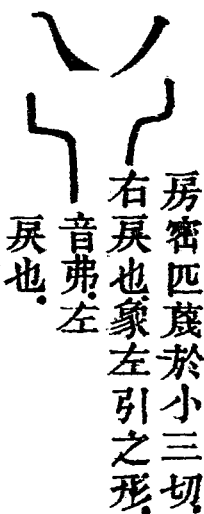 丿
房密匹蔑於小三切.
右戾也.象左引之形.
乀
音弗.左
戾也.